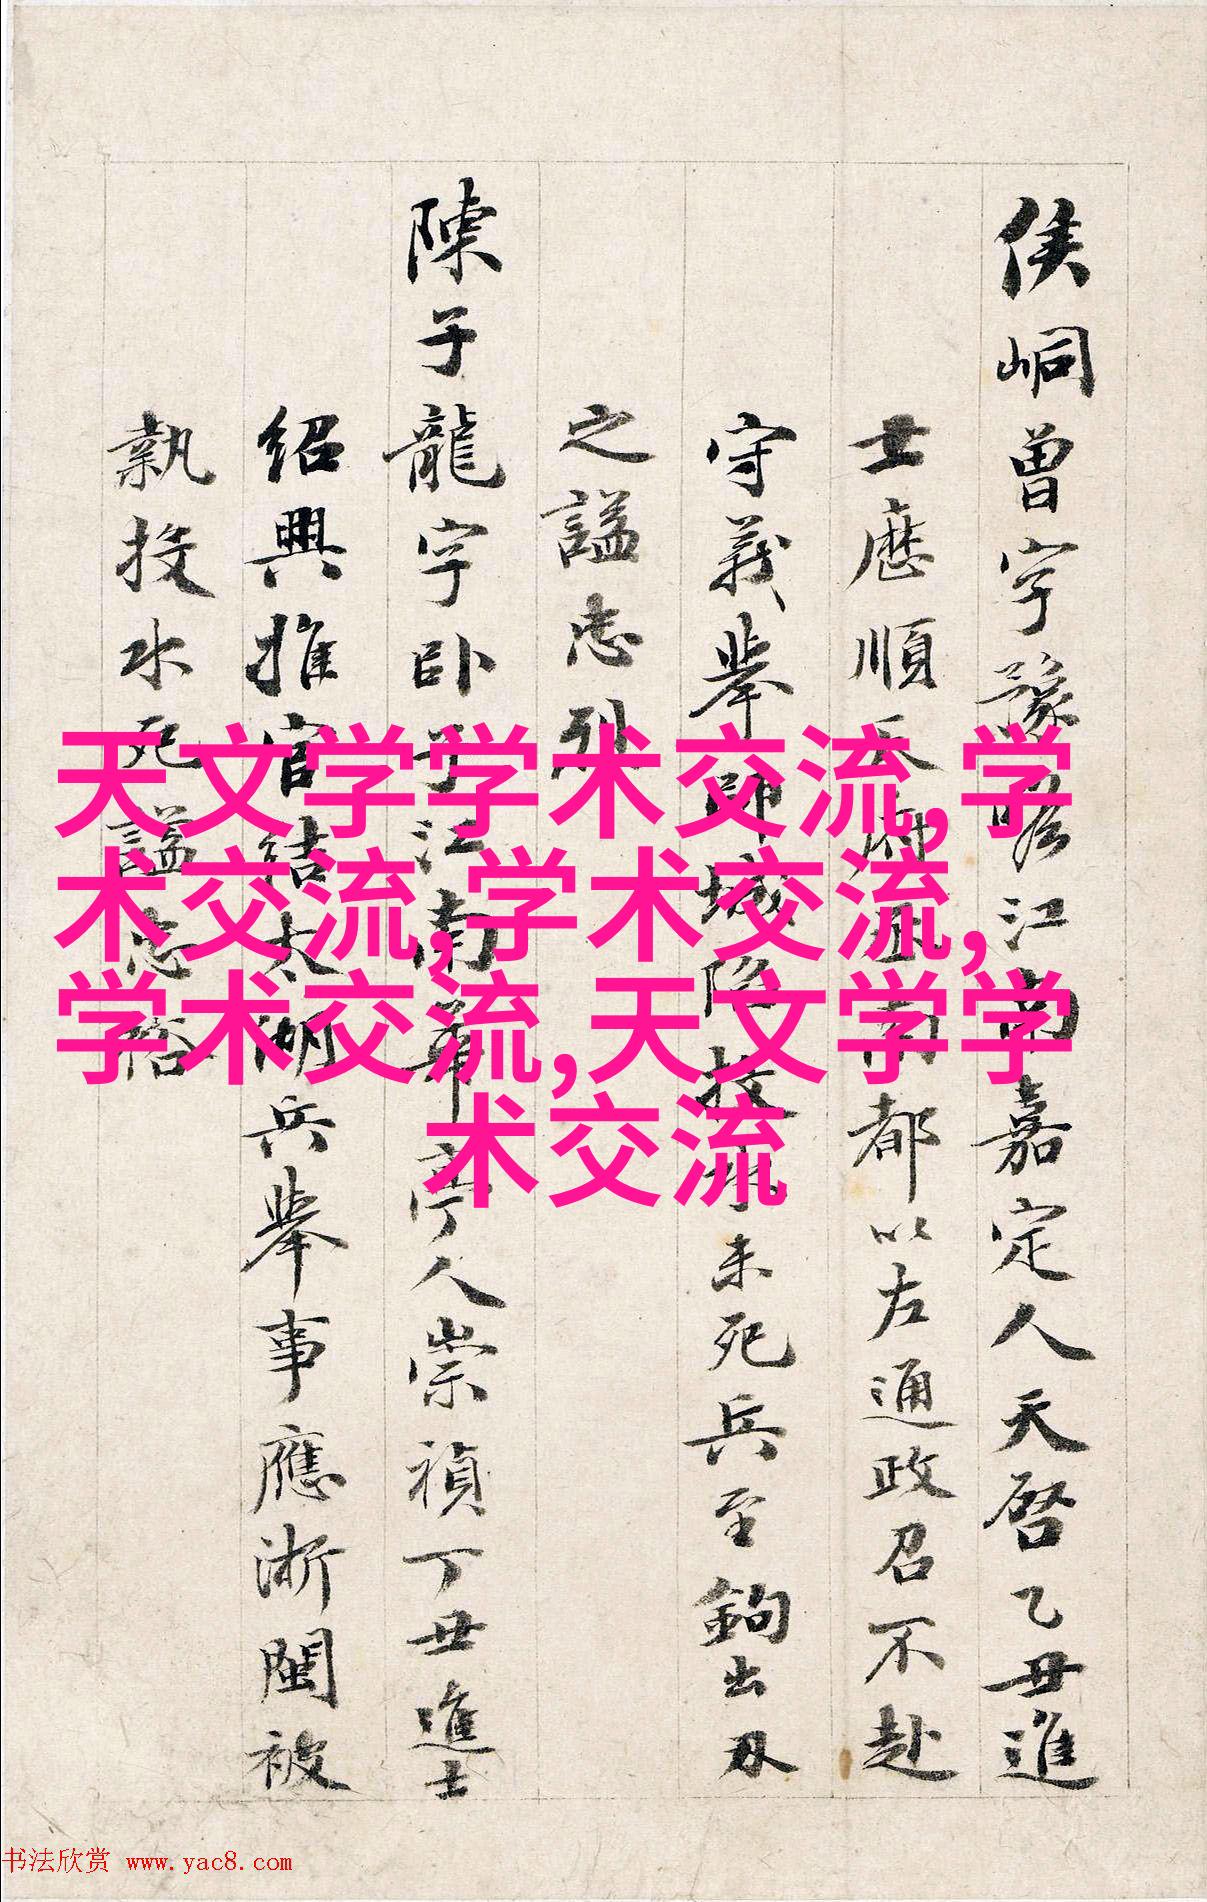 侯峒曾字豫瞻江南嘉定人天启乙丑進
士歷順天府丞南都以左通政召不赴
守義舉師城陷投水未死兵至鉤出刃
之謚忠烈
陳子龍字卧子江南華亭人崇禎丁丑進士
紹興推官結太湖兵舉事應浙閩被
執投水死謚忠裕
天文学学术交流,学
术交流,学术交流,
学术交流,天文学学
术交流
书法欣赏 www.yac8.com